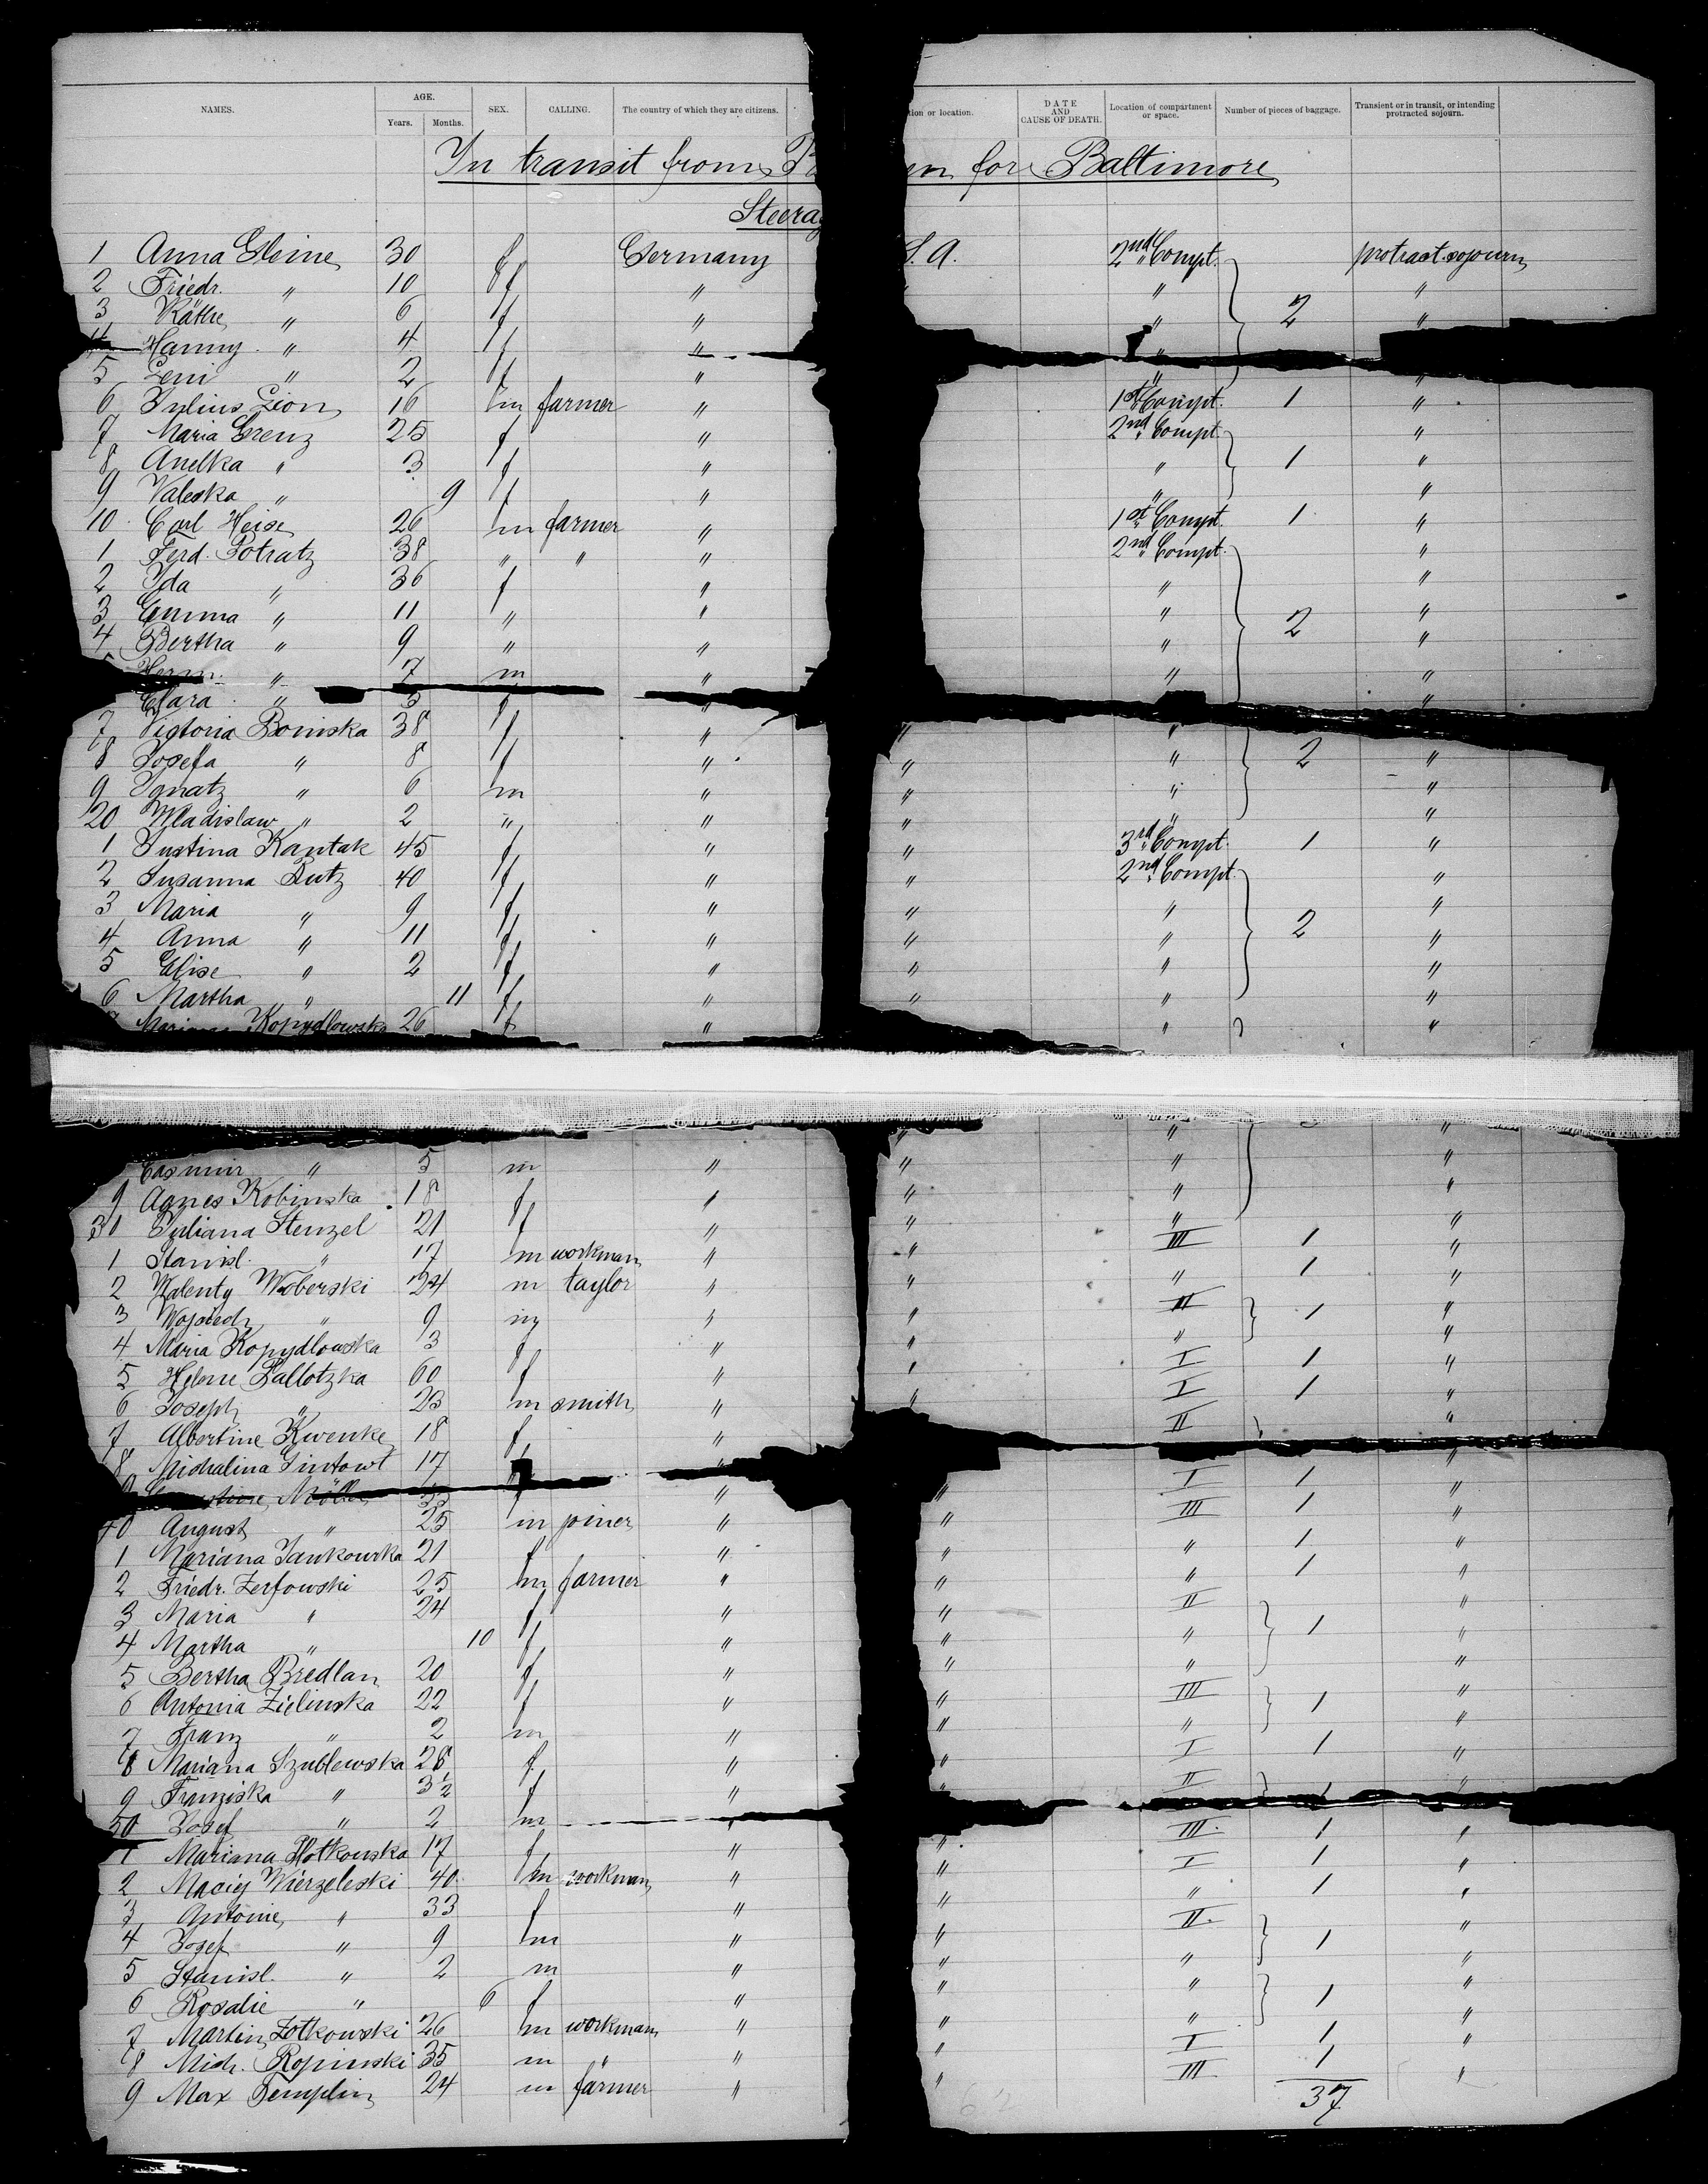 NAMES. AGE. SEX. CALLING. The country of which they are citizens. tion or location. DATE AND CAUSE OF DEATH. Location of compartment or space. Number of pieces of baggage. Transient or in transit, or intending protracted sojourn.
Years. Months.
In transit from B en for Baltimore
Steerag
1 Anna Gleine 30 f Germany S. A. 2nd Compt. protract. sojourn
2 Friedr. " 10 f " " "
3 Käthe " 6 f " " 2 "
4 Hanny " 4 f " "
5 Leni " 2 f " " "
6 Julius Zion 16 m farmer " 1st Compt. 1 "
7 Maria Grenz 25 f " 2nd Compt. "
8 Anelka " 3 f " " 1 "
9 Valeska " 9 f " " "
10 Carl Heise 26 m farmer " 1st Compt. 1 "
1 Ferd. Potratz 38 " " " 2nd Compt. "
2 Ida " 36 f " " "
3 Emma " 11 " " " "
4 Bertha " 9 " " " 2 "
Herm. " 7 m " " "
Clara " 5 f " "
7 Victoria Boniska 38 f " " "
8 Josefa " 8 f " " " 2 "
9 Ignatz " 6 m " " " "
20 Wladislaw " 2 " " " " "
1 Justina Kantak 45 f " " 3rd Compt. 1 "
2 Susanna Butz 40 f " " 2nd Compt. "
3 Maria " 9 f " " " "
4 Anna " 11 f " " " 2 "
5 Elise " 2 f " " " "
6 Martha " 11 f " " " "
Kopydlowska 26 f " " "
" " "
Casimir " 5 m " " " "
9 Agnes Kobinska 18 f " " " "
30 Juliana Stenzel 21 f " " " "
1 Stanisl. " 17 m workman " " III 1 "
2 Walenty Woberski 24 m taylor " " " 1 "
3 Wojciech " 9 m " " III 1 "
4 Maria Kopydlowska 3 f " " " "
5 Helene Pallotzka 60 f " " I 1 "
6 Joseph " 23 m smith " " I 1 "
7 Albertine Kwenke 18 f " II "
8 Michalina Gintowt 17 f " I 1 "
Möller f " " III 1 "
40 August " 25 m joiner " " " 1 "
1 Mariana Jankowska 21 f " " " 1 "
2 Friedr. Zerfowski 25 m farmer " " II "
3 Maria " 24 f " " " 1 "
4 Martha " 10 f " " " "
5 Bertha Bredlan 20 f " " III "
6 Antonia Zielinska 22 f " " " 1 "
7 Franz " 2 m " " I 1 "
8 Mariana Szublewska 28 f " " II 1 "
9 Franziska " 3½ f "
50 Josef " 2 m " " III. 1 "
1 Mariana Plotkowska 17 f " " I 1 "
2 Maciej Wierzeleski 40 m workman " " " 1 "
3 Antonie " 33 f " " II. "
4 Josef " 9 m " " " 1 "
5 Stanisl. " 2 m " " " "
6 Rosalie " 6 f " " " 1 "
7 Martin Zotkowski 26 m workman " " I 1 "
8 Mich. Ropinski 35 m " " " III 1 "
9 Max Templin 24 m farmer "
37